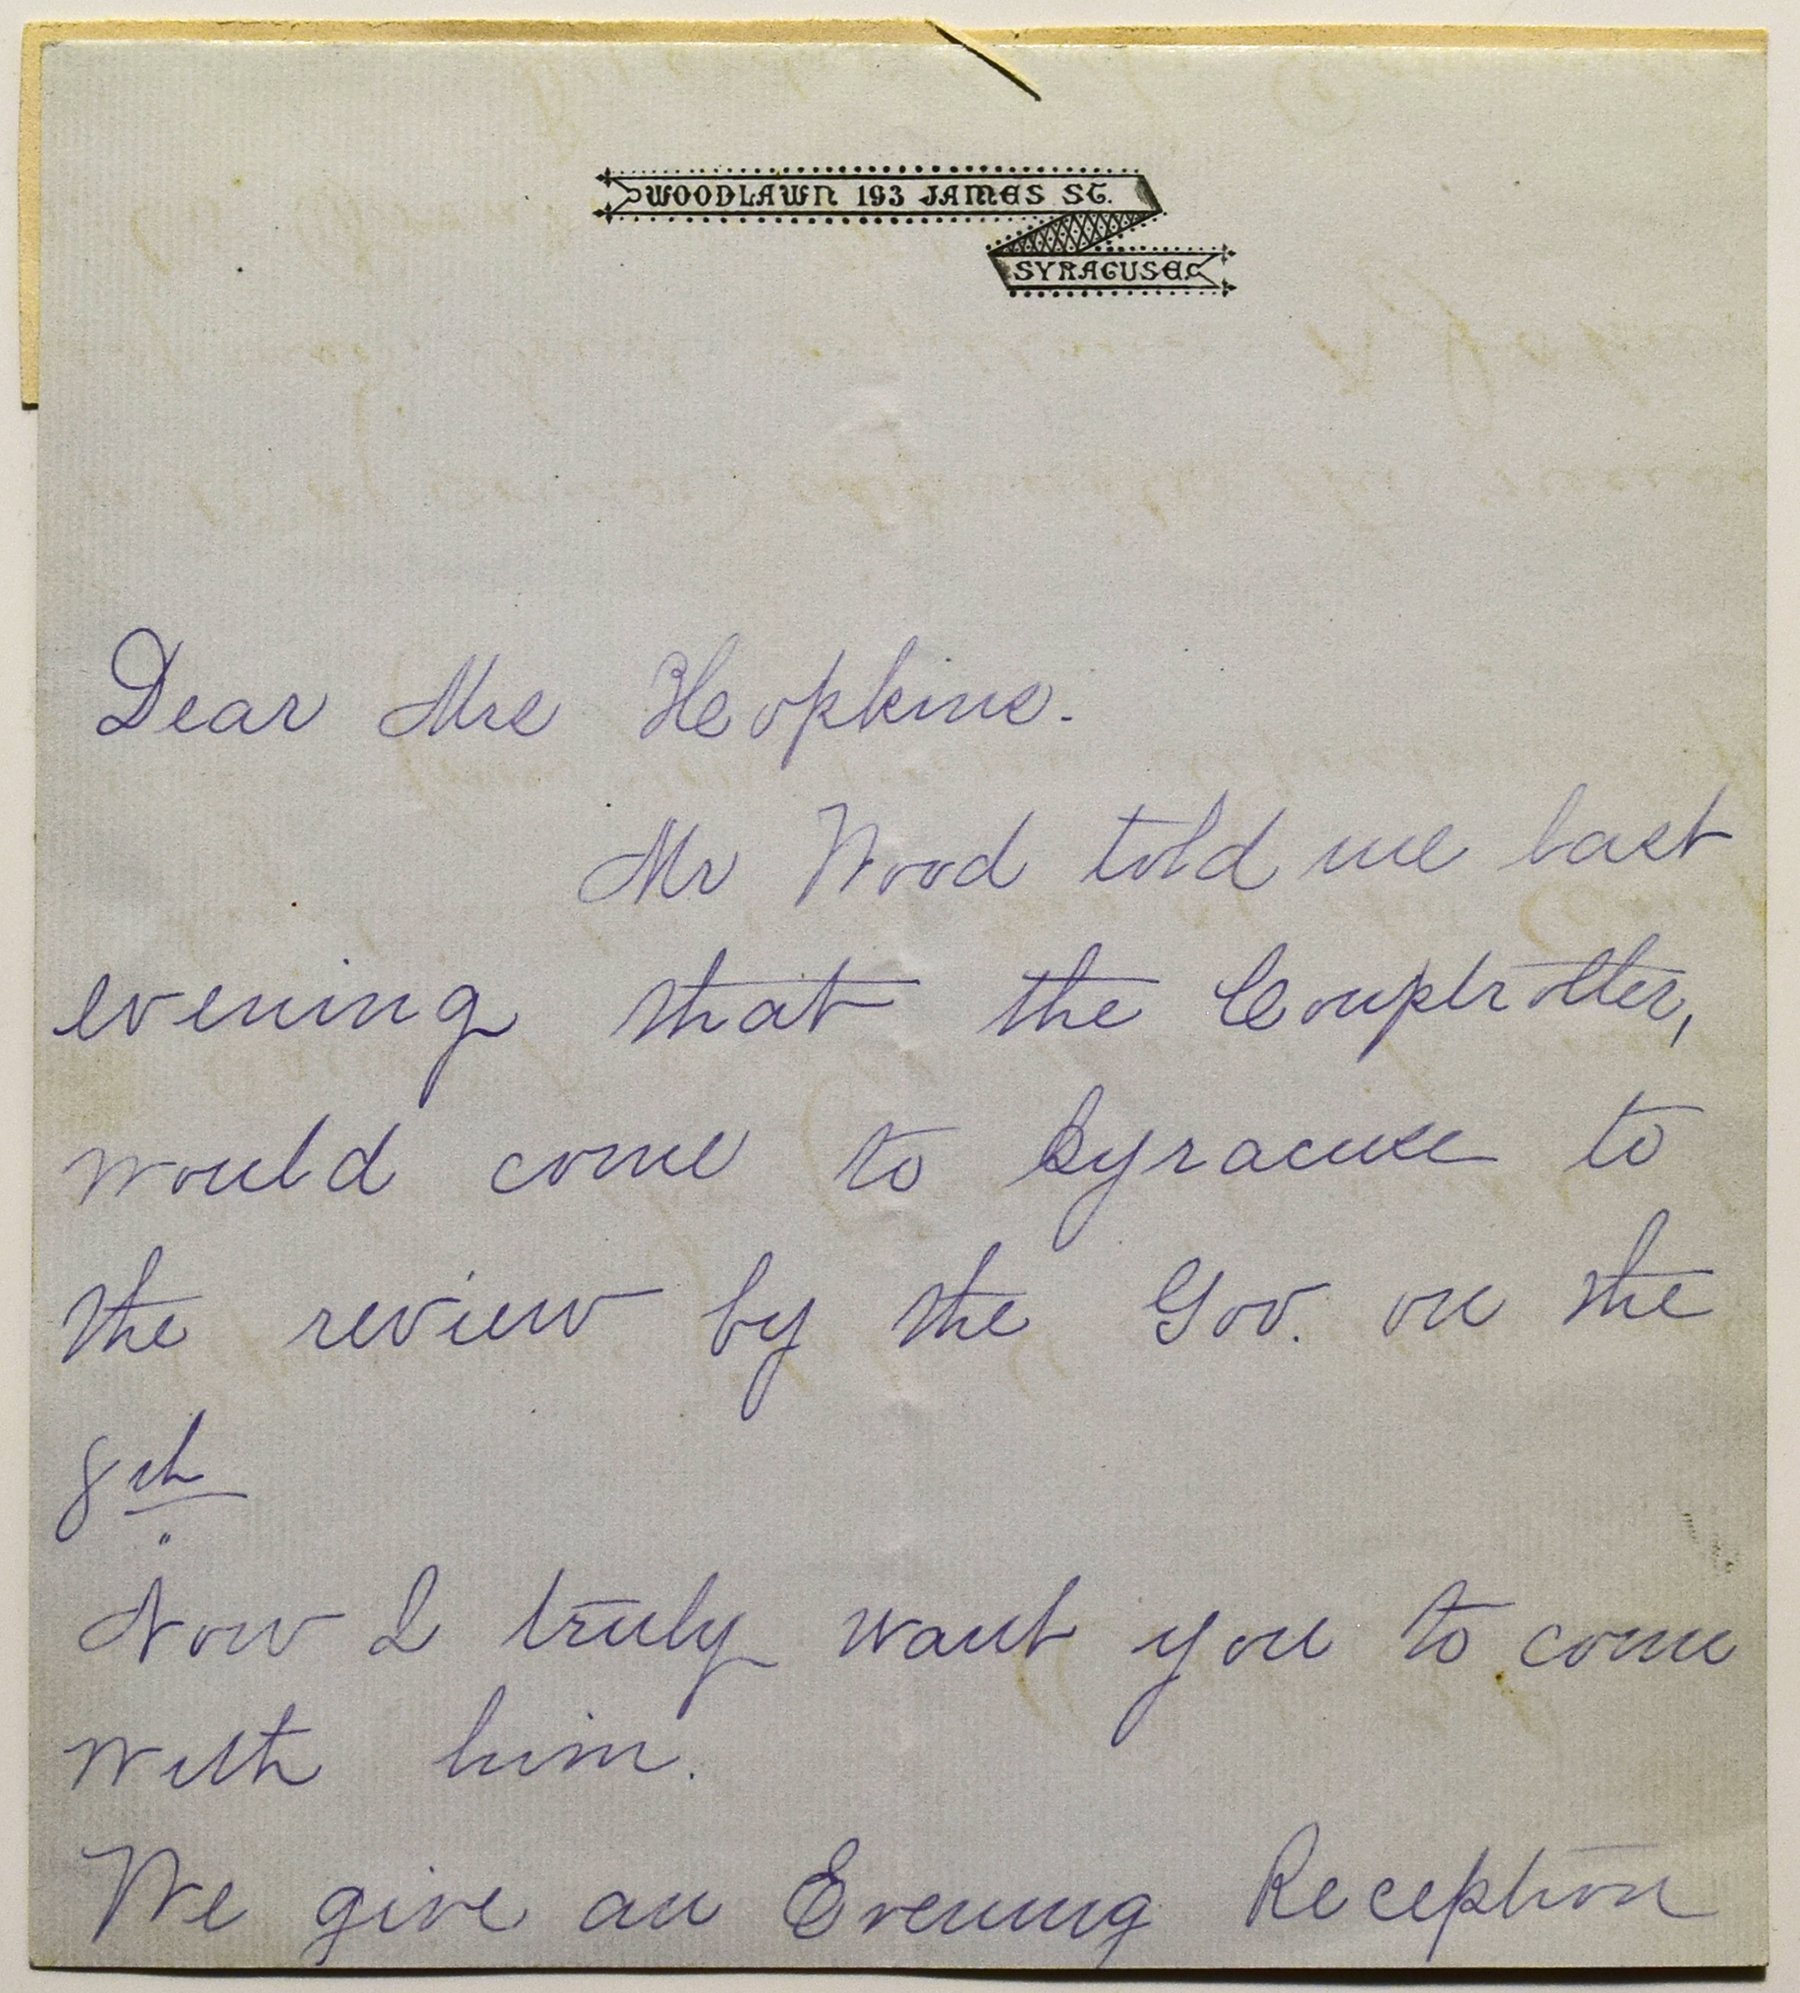 WOODLAWN 193 JAMES ST.
SYRACUSE.
Dear Mrs Hopkins.
Mr Wood told me last
evening that the Comptroller,
would come to Syracuse to
the review by the Gov. on the
8th
Now I truly want you to come
with him.
We give an Evening Reception